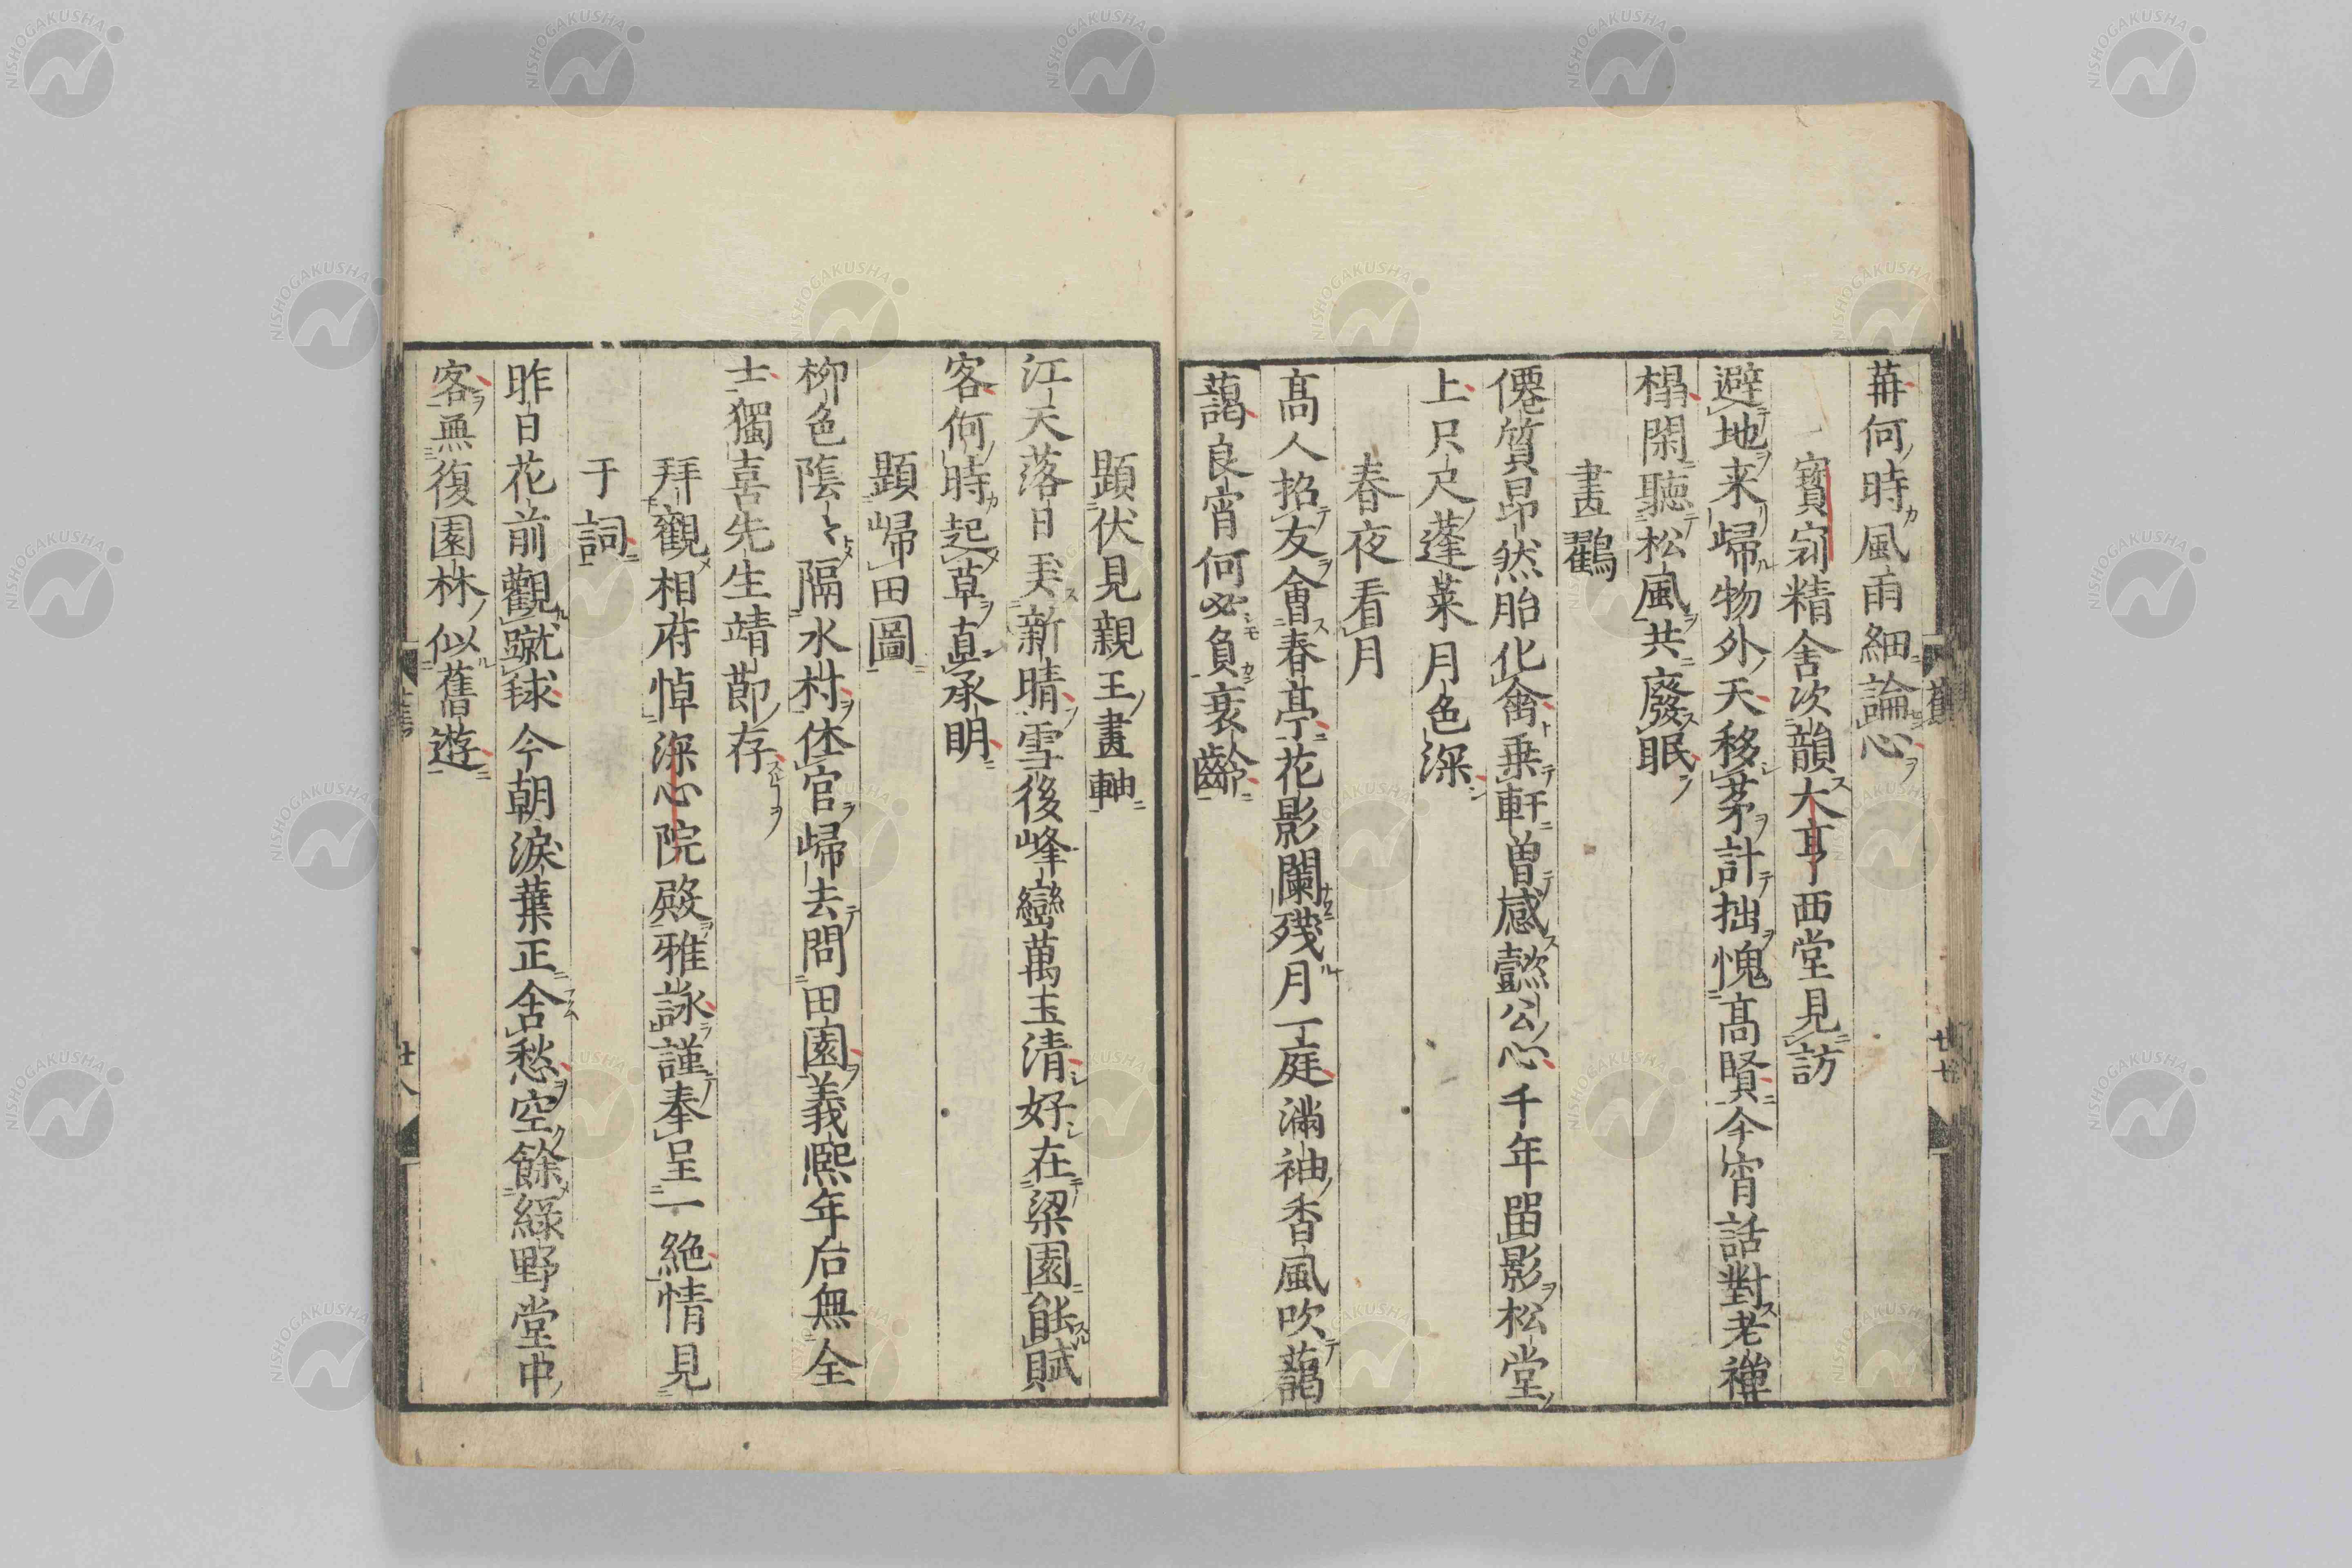 苒何時風雨細論心
寳㓂精舎次韻大亨西堂見訪
避地来歸物外天移茅計拙愧髙賢今宵話對老禅
榻閑聴松風共廢眠
畫鸛
僊質昂然胎化禽乗軒曽感懿公心千年畱影松堂
上只尺蓬莱月色深
春夜看月
髙人招友會春亭花影闌殘月一庭滿袖香風吹藹
藹良宵何必負衰齡
題伏見親王畫軸
江天落日美新晴雪後峰巒萬玉清好在梁園能賦
客何時起草直承明
題歸田圖
柳色陰〻隔水村休官歸去問田園義熈年后無全
士獨喜先生靖莭存
拜觀相府悼深心院殿雅詠謹奉呈一絶情見
于詞
昨日花前觀蹴毬今朝淚葉正含愁空餘緑野堂中
客無復園林似舊遊
廿七
廿八
NISHOGAKUSHA